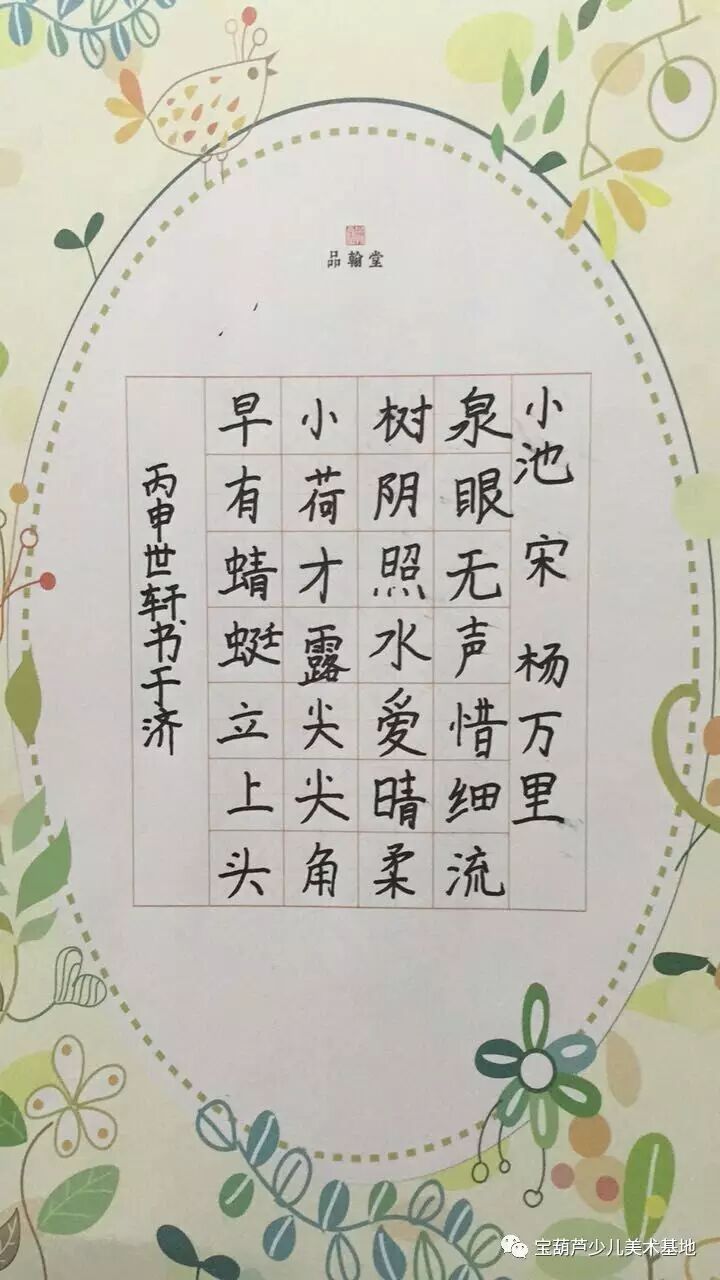 品翰堂
小池 宋 杨万里
泉眼无声惜细流
树阴照水爱晴柔
小荷才露尖尖角
早有蜻蜓立上头
丙申世轩书于济
宝葫芦少儿美术基地